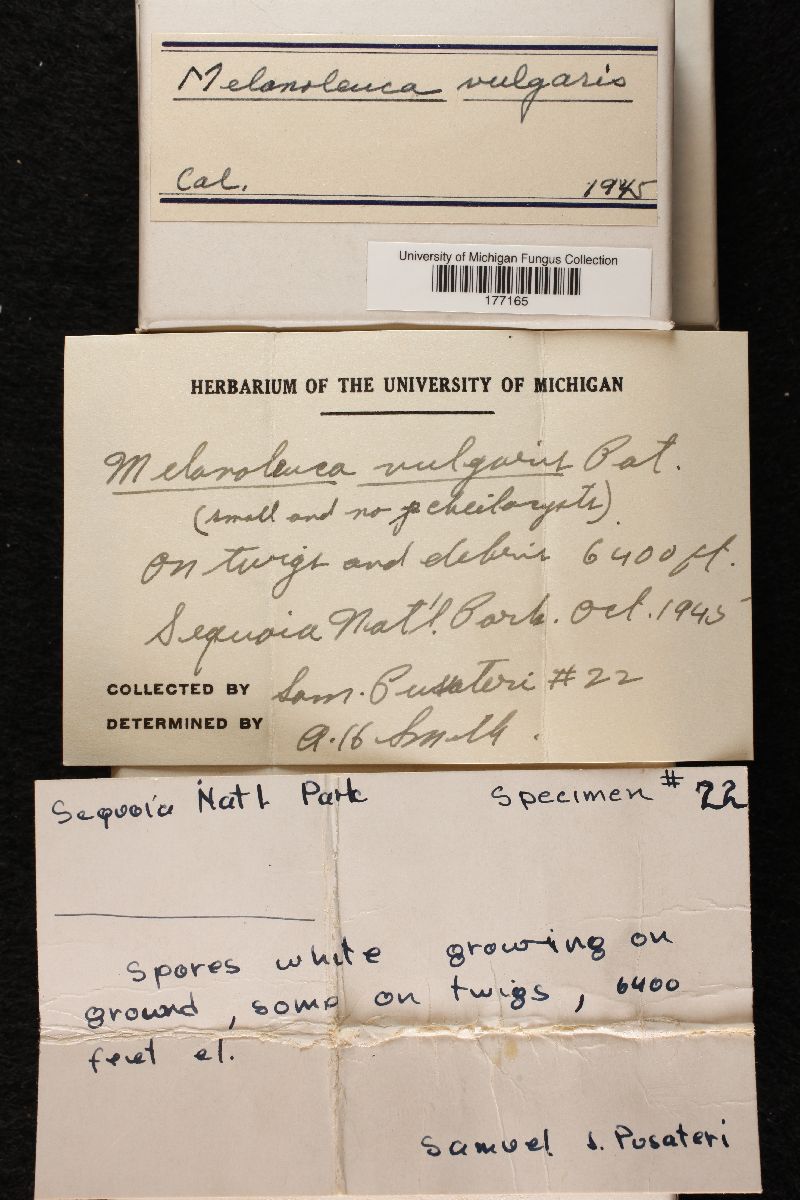 Melanoleuca vulgaris
Cal. 1945
University of Michigan Fungus Collection
177165
HERBARIUM OF THE UNIVERSITY OF MICHIGAN
Melanoleuca vulgaris Pat.
(small and no cheilocysts)
On twigs and debris 6400 ft.
Sequoia Nat'l. Park. Oct. 1945
COLLECTED BY Sam. Pusateri #22
DETERMINED BY A. H Smith.
Sequoia Nat'l Park Specimen # 22
Spores white growing on
ground, some on twigs, 6400
feet el.
Samuel J. Pusateri